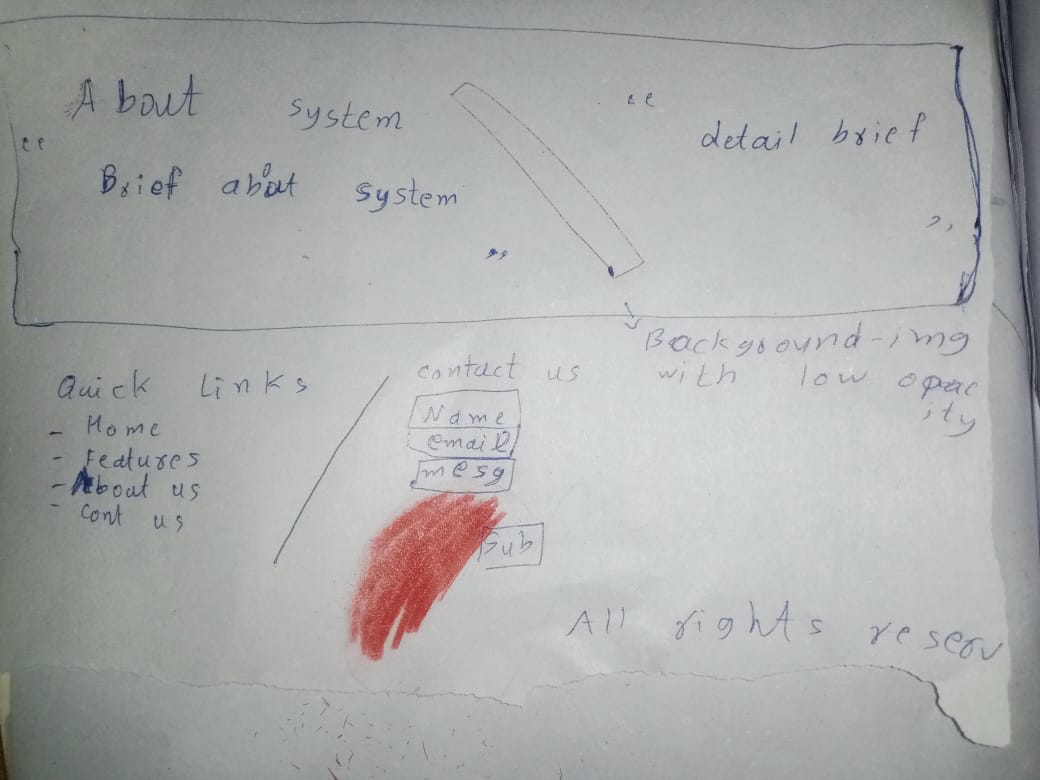 About system
“ Brief about system ”
“ detail brief ”
Background-img
with low opac
ity
Quick Links
- Home
- Features
- About us
- Cont us
contact us
Name
email
mesg
Sub
All rights reserv